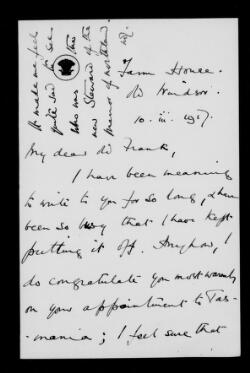 Farm House.
Old Windsor.
10. iii. 1917.
My dear Sir Frank,
I have been meaning
to write to you for so long, & have
been so busy that I have kept
putting it off. Anyhow, I
do congratulate you most warmly
on your appointment to Tas-
-mania; I feel sure that
It made me feel
quite sad to see
who was the
new Steward of the
Manor of Northland.